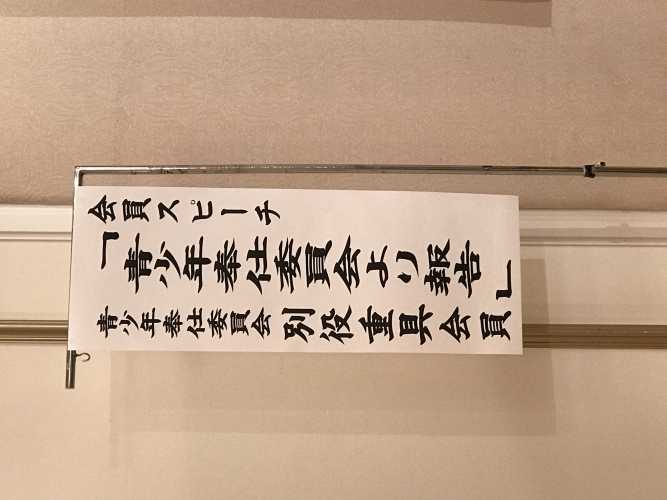 会員スピーチ
「青少年奉仕委員会より報告」
青少年奉仕委員会 別役重具会員